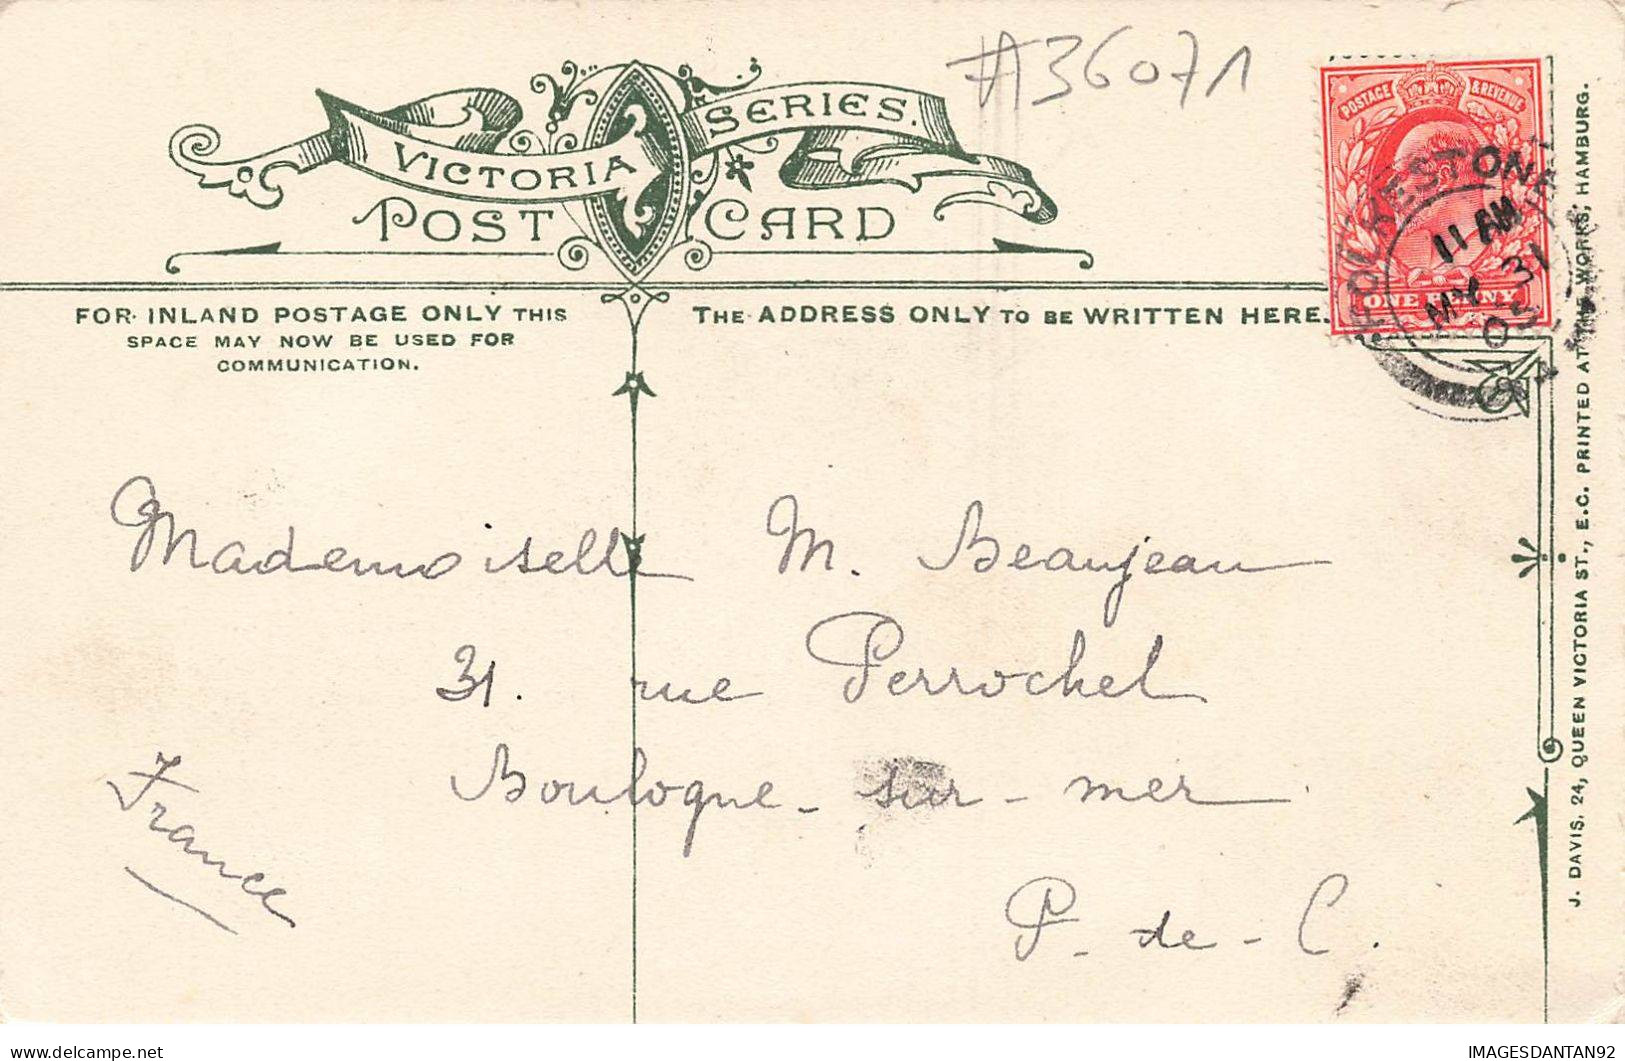 #36071
VICTORIA SERIES.
POST CARD
POSTAGE & REVENUE
ONE PENNY
FOLKESTONE
11 AM
MY 31
05
FOR INLAND POSTAGE ONLY THIS
SPACE MAY NOW BE USED FOR
COMMUNICATION.
THE ADDRESS ONLY TO BE WRITTEN HERE.
Mademoiselle M. Beaujean
31. rue Perrochel
Boulogne-sur-mer
P-de-C.
France
J. DAVIS, 24, QUEEN VICTORIA ST., E.C. PRINTED AT THE WORKS, HAMBURG.
delcampe.net
IMAGESDANTAN92